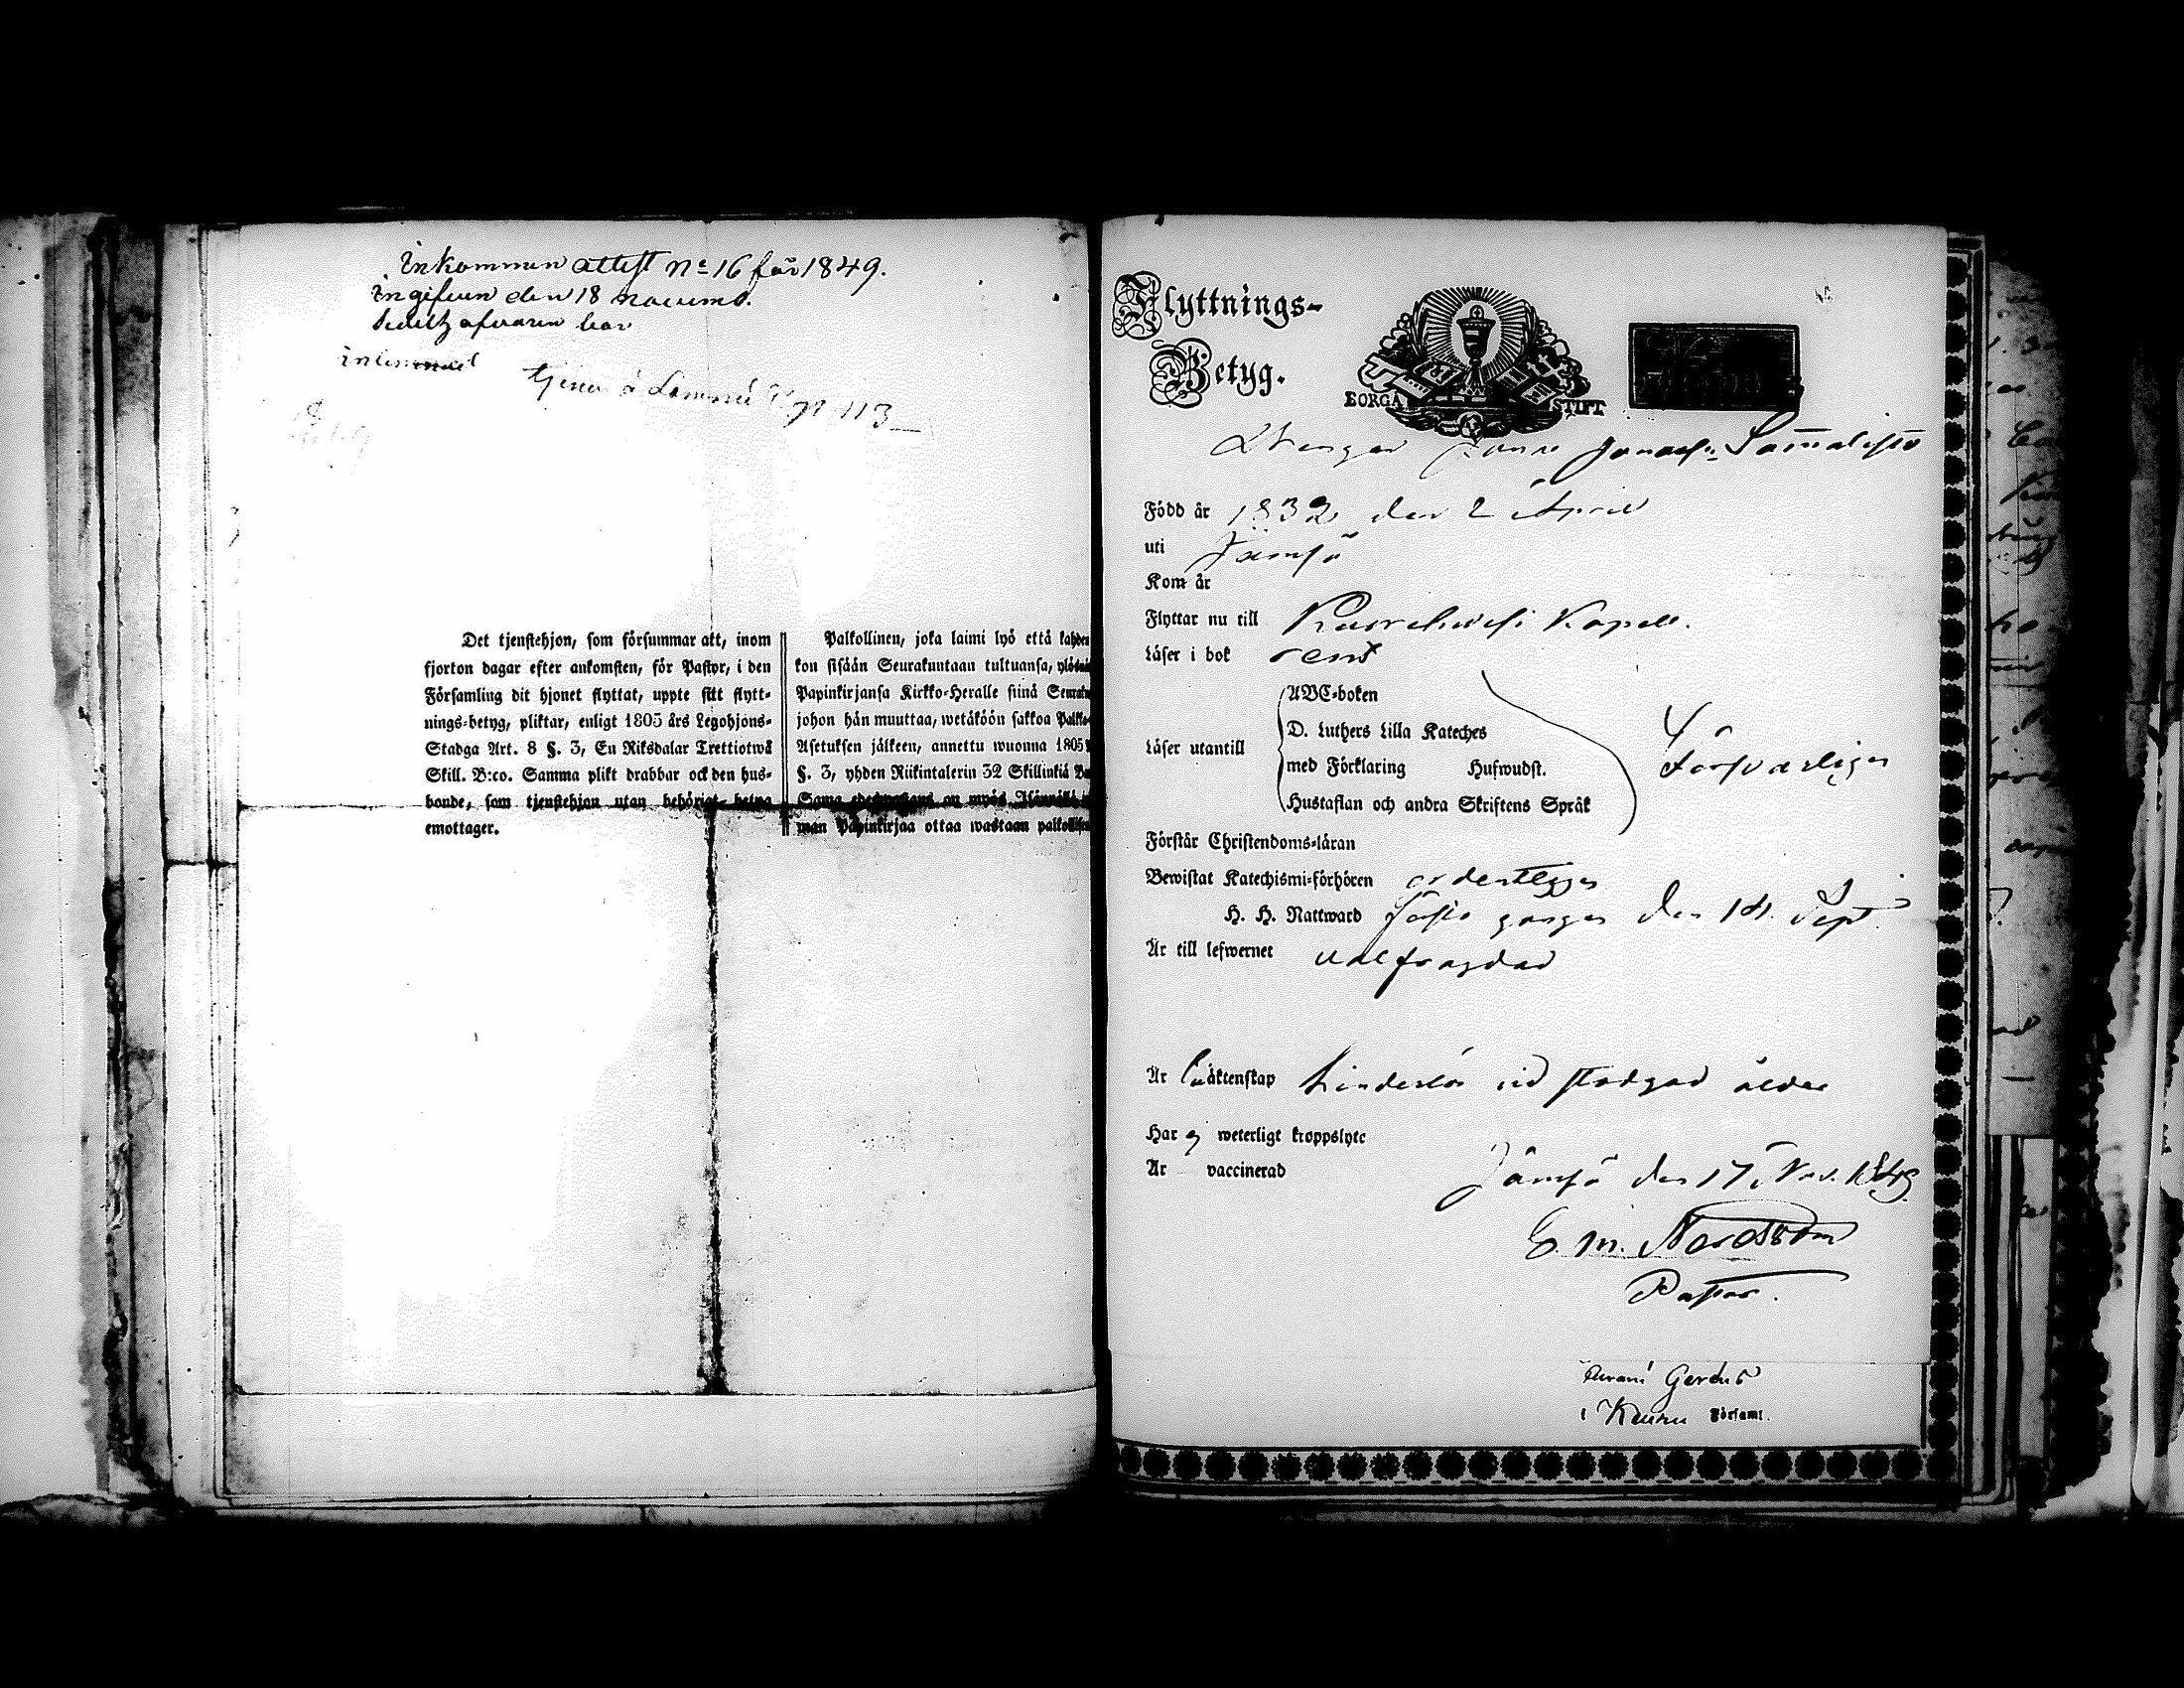 Inkommen attest No 16 för 1849.
Ingifven den 18 novemb.
har
inlemnad
tjena å 113
Det tjenstehjon, som försummar att, inom
fjorton dagar efter ankomsten, för Pastor, i den
Församling dit hjonet flyttat, uppte sitt flytt-
nings-betyg, pliktar, enligt 1805 års Legohjons-
Stadga Art. 8 §. 3, En Riksdalar Trettiotwå
Skill. B:co. Samma plikt drabbar ock den hus-
bonde, som tjenstehjon utan behörigt betyg
emottager.
Palkollinen, joka laimi lyö että kahden
kon sisään Seurakuntaan tultuansa,
Papinkirjansa Kirkko-Heralle siinä
johon hän muuttaa, wetäköön sakkoa
Asetuksen jälkeen, annettu wuonna 1805
§. 3, yhden Riikintalerin 32 Skillinkiä
Sama on myös
man Papinkirjaa ottaa wastaan
Flyttnings-
Betyg.
BORGÅ STIFT
Drengen
Född år 1832 den 2 April
uti Jämsä
Kom år
Flyttar nu till Kuorehvesi Kapell.
Läser i bok rent
ABC-boken
D. Luthers Lilla Kateches
Läser utantill
med Förklaring Hufwudst.
Försvarligen
Hustaflan och andra Skriftens Språk
Förstår Christendoms-läran
Bewistat Katechismi-förhören ordentligen
H. H. Nattward första gången den 14 Sept.
Är till lefwernet välfrägdad
Är äktenskap hinderlös vid stadgad ålder
Har ej weterligt kroppslyte
Är vaccinerad
Jämsä den 17 Nov. 1849.
E. M. Nordström
Pastor.
i Keuru Församl.